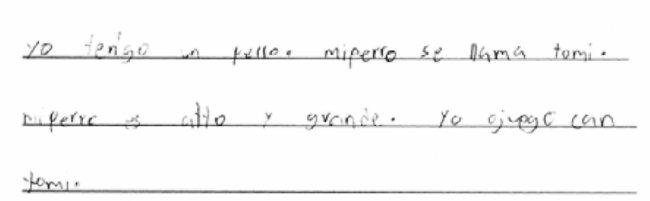 yo tengo un perro. miperro se llama tomi.
miperro es alto y grande. Yo ojuego con
tomi.